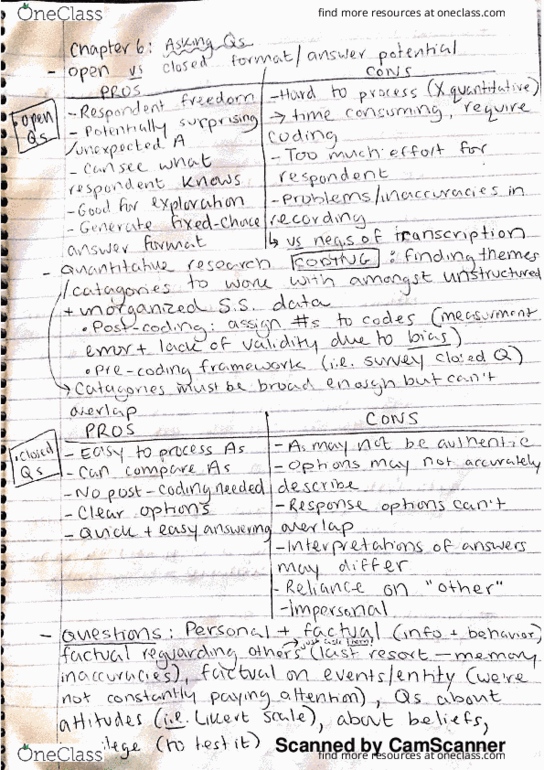 OneClass
find more resources at oneclass.com
Chapter 6: Asking Qs
- open vs closed format/answer potential
PROS
CONS
open Qs
- Respondent freedom
- Potentially surprising
/unexpected A
- Can see what
respondent knows
- Good for exploration
- Generate fixed-choice
answer format
- Hard to process (X quantitative)
→ time consuming, require
coding
- Too much effort for
respondent
- Problems/inaccuracies in
recording
↳ vs negs of transcription
- quantitative research CODING: finding themes
/catagories to work with amongst unstructured
+ unorganized S.S. data
• Post-coding: assign #s to codes (measurment
error + lack of validity due to bias)
• pre-coding framework (i.e. survey closed Q)
→ Catagories must be broad enough but can't
overlap
PROS
CONS
closed Qs
- Easy to process As
- Can compare As
- No post-coding needed
- Clear options
- Quick + easy answering
- As may not be authentic
- Options may not accurately
describe
- Response options can't
overlap
- Interpretations of answers
may differ
- Reliance on "other"
- impersonal
- Questions: Personal + factual (info + behavior)
factual reguarding others (last resort - memory
→ just ask them!
inaccuracies), factual on events/entity (we're
not constantly paying attention), Qs about
attitudes (i.e. Likert Scale), about beliefs,
(to test it)
Scanned by CamScanner
OneClass
find more resources at oneclass.com